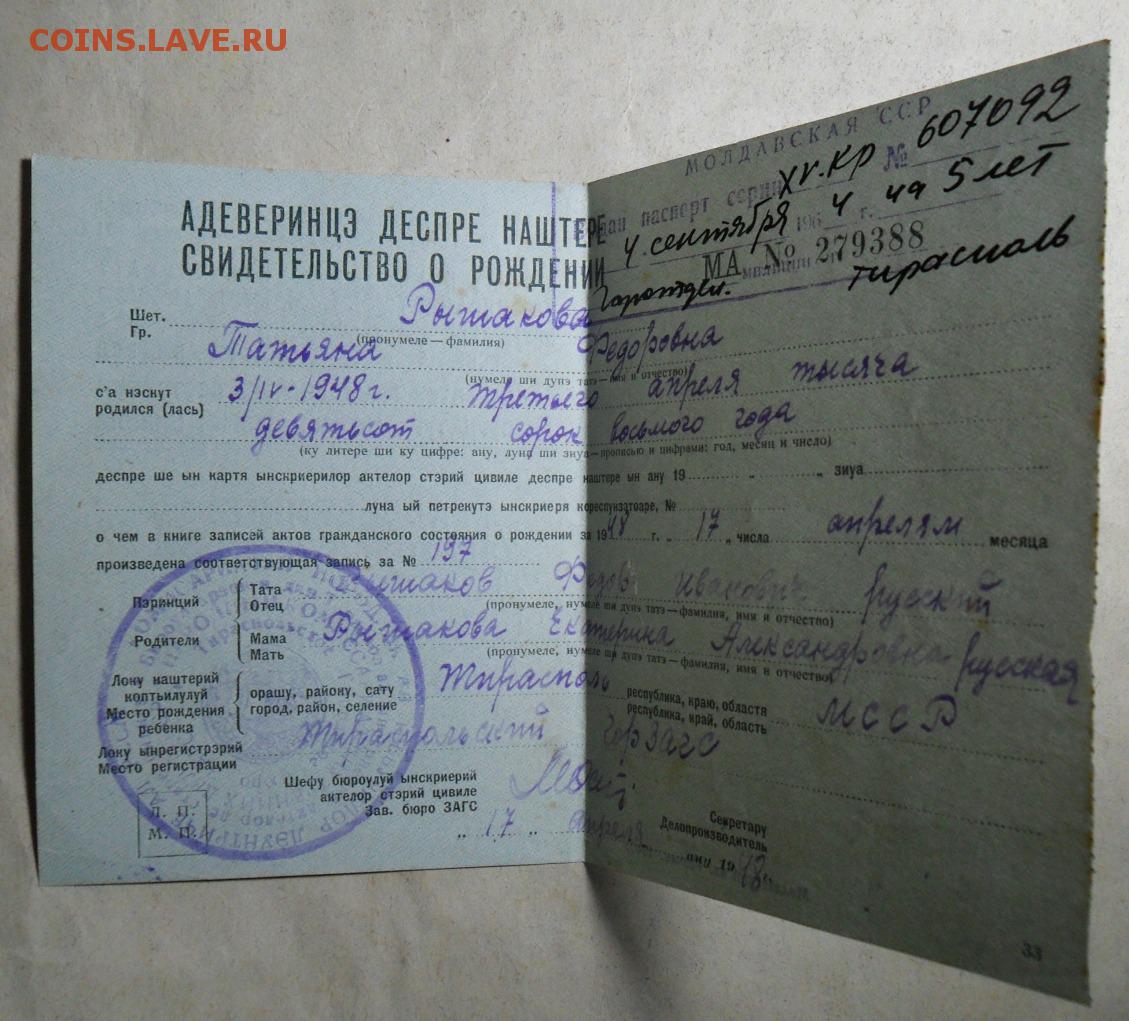 COINS.LAVE.RU
МОЛДАВСКАЯ ССР
паспорт серии XV.КР № 607092
4 сентября 1964 г. на 5 лет
МА № 279388
Тирасполь
АДЕВЕРИНЦЭ ДЕСПРЕ НАШТЕРЕ
СВИДЕТЕЛЬСТВО О РОЖДЕНИИ
Шет.
Гр. Рышакова
(пронумеле — фамилия)
Татьяна Федоровна
(нумеле ши дупэ татэ — имя и отчество)
с'а нэскут
родился (лась) 3/IV-1948 г. третьего апреля тысяча
девятьсот сорок восьмого года
(ку литере ши ку цифре: ану, луна ши зиуа — прописью и цифрами: год, месяц и число)
деспре ше ын картя ынскриерилор актелор стэрий цивиле деспре наштере ын ану 19 „ „ зиуа
луна ый петрекутэ ынскриеря кореспунзэтоаре, №
о чем в книге записей актов гражданского состояния о рождении за 1948 г. „ 17 „ числа апрелям месяца
произведена соответствующая запись за № 197
Пэринций
Родители
Тата
Отец Рышаков Федор Иванович русский
(пронумеле, нумеле ши дупэ татэ — фамилия, имя и отчество)
Мама
Мать Рышакова Екатерина Александровна русская
(пронумеле, нумеле ши дупэ татэ — фамилия, имя и отчество)
Локу наштерий
копьилулуй
Место рождения
ребенка
орашу, району, сату
город, район, селение Тирасполь
република, краю, областя
республика, край, область МССР
Локу ынрегистрэрий
Место регистрации Тираспольский ГорЗАГС
Шефу бюроулуй ынскриерий
актелор стэрий цивиле
Зав. бюро ЗАГС
Секретару
Делопроизводитель
„ 17 „ апреля ану 1948
Л. П.
М. П.
33